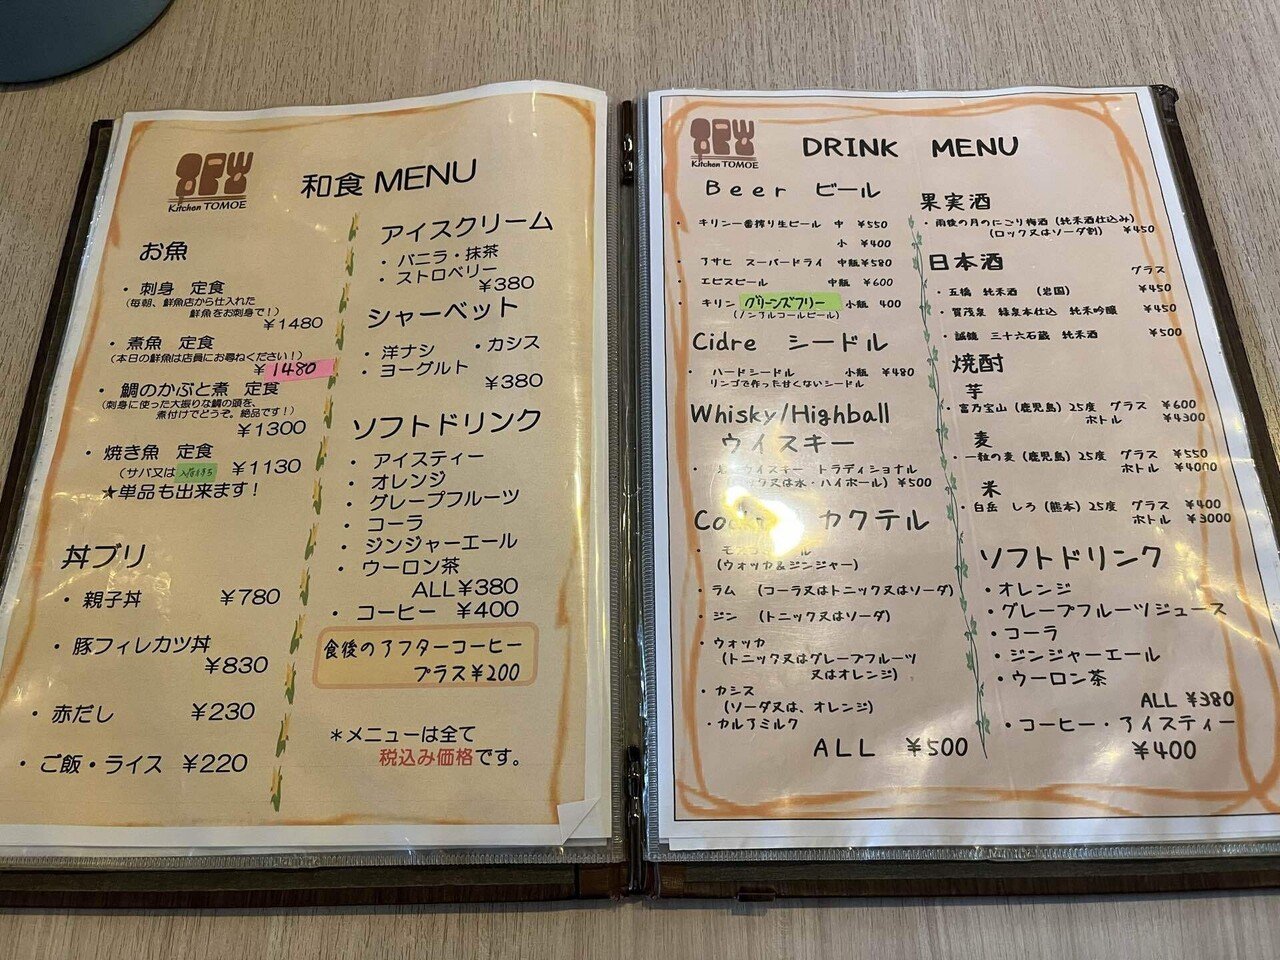 Kitchen TOMOE
和食 MENU
お魚
・刺身 定食
(毎朝、鮮魚店から仕入れた
鮮魚をお刺身で!)
¥1480
・煮魚 定食
(本日の鮮魚は店員にお尋ねください!)
¥1480
・鯛のかぶと煮 定食
(刺身に使った大振りな鯛の頭を、
煮付けでどうぞ。絶品です!)
¥1300
・焼き魚 定食
(サバ又は
¥1130
★単品も出来ます!
丼ブリ
・親子丼 ¥780
・豚フィレカツ丼
¥830
・赤だし ¥230
・ご飯・ライス ¥220
アイスクリーム
・バニラ・抹茶
・ストロベリー
¥380
シャーベット
・洋ナシ ・カシス
・ヨーグルト
¥380
ソフトドリンク
・アイスティー
・オレンジ
・グレープフルーツ
・コーラ
・ジンジャーエール
・ウーロン茶
ALL¥380
・コーヒー ¥400
食後のアフターコーヒー
プラス¥200
*メニューは全て
税込み価格です。
Kitchen TOMOE
DRINK MENU
Beer ビール
・キリン一番搾り生ビール 中 ¥550
小 ¥400
・アサヒ スーパードライ 中瓶 ¥580
・エビスビール 中瓶 ¥600
・キリン グリーンズフリー 小瓶 400
(ノンアルコールビール)
Cidre シードル
・ハードシードル 小瓶 ¥480
リンゴで作った甘くないシードル
Whisky/Highball
ウイスキー
ウイスキー トラディショナル
ック又は水・ハイボール) ¥500
カクテル
(ウォッカ&ジンジャー)
・ラム (コーラ又はトニック又はソーダ)
・ジン (トニック又はソーダ)
・ウォッカ
(トニック又はグレープフルーツ
又はオレンジ)
・カシス
(ソーダ又は、オレンジ)
・カルアミルク
ALL ¥500
果実酒
・雨後の月のにごり梅酒 (純米酒仕込み)
(ロック又はソーダ割) ¥450
日本酒
グラス
・五橋 純米酒 (岩国) ¥450
・賀茂泉 緑泉本仕込 純米吟醸 ¥450
・誠鏡 三十六石蔵 純米酒 ¥500
焼酎
芋
・富乃宝山 (鹿児島) 25度 グラス ¥600
ボトル ¥4300
麦
・一粒の麦 (鹿児島) 25度 グラス ¥550
ボトル ¥4000
米
・白岳 しろ (熊本) 25度 グラス ¥400
ボトル ¥3000
ソフトドリンク
・オレンジ
・グレープフルーツジュース
・コーラ
・ジンジャーエール
・ウーロン茶
ALL ¥380
・コーヒー・アイスティー
¥400